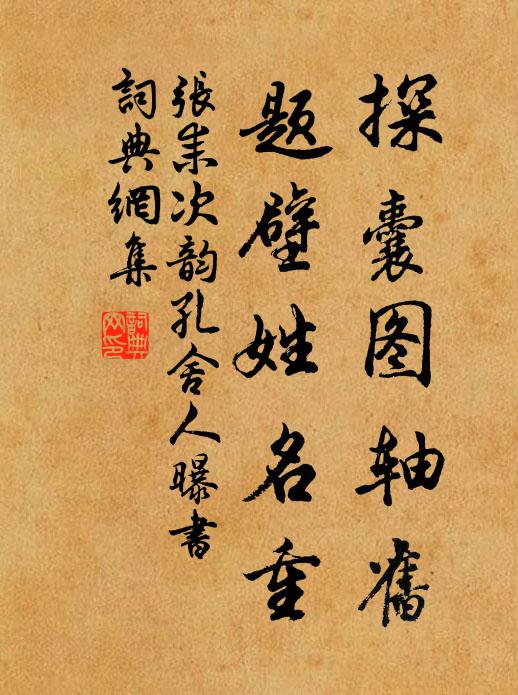 探囊图轴舊
题壁姓名重
張耒次韵孔舍人曝書
詞典網集
詞典网印